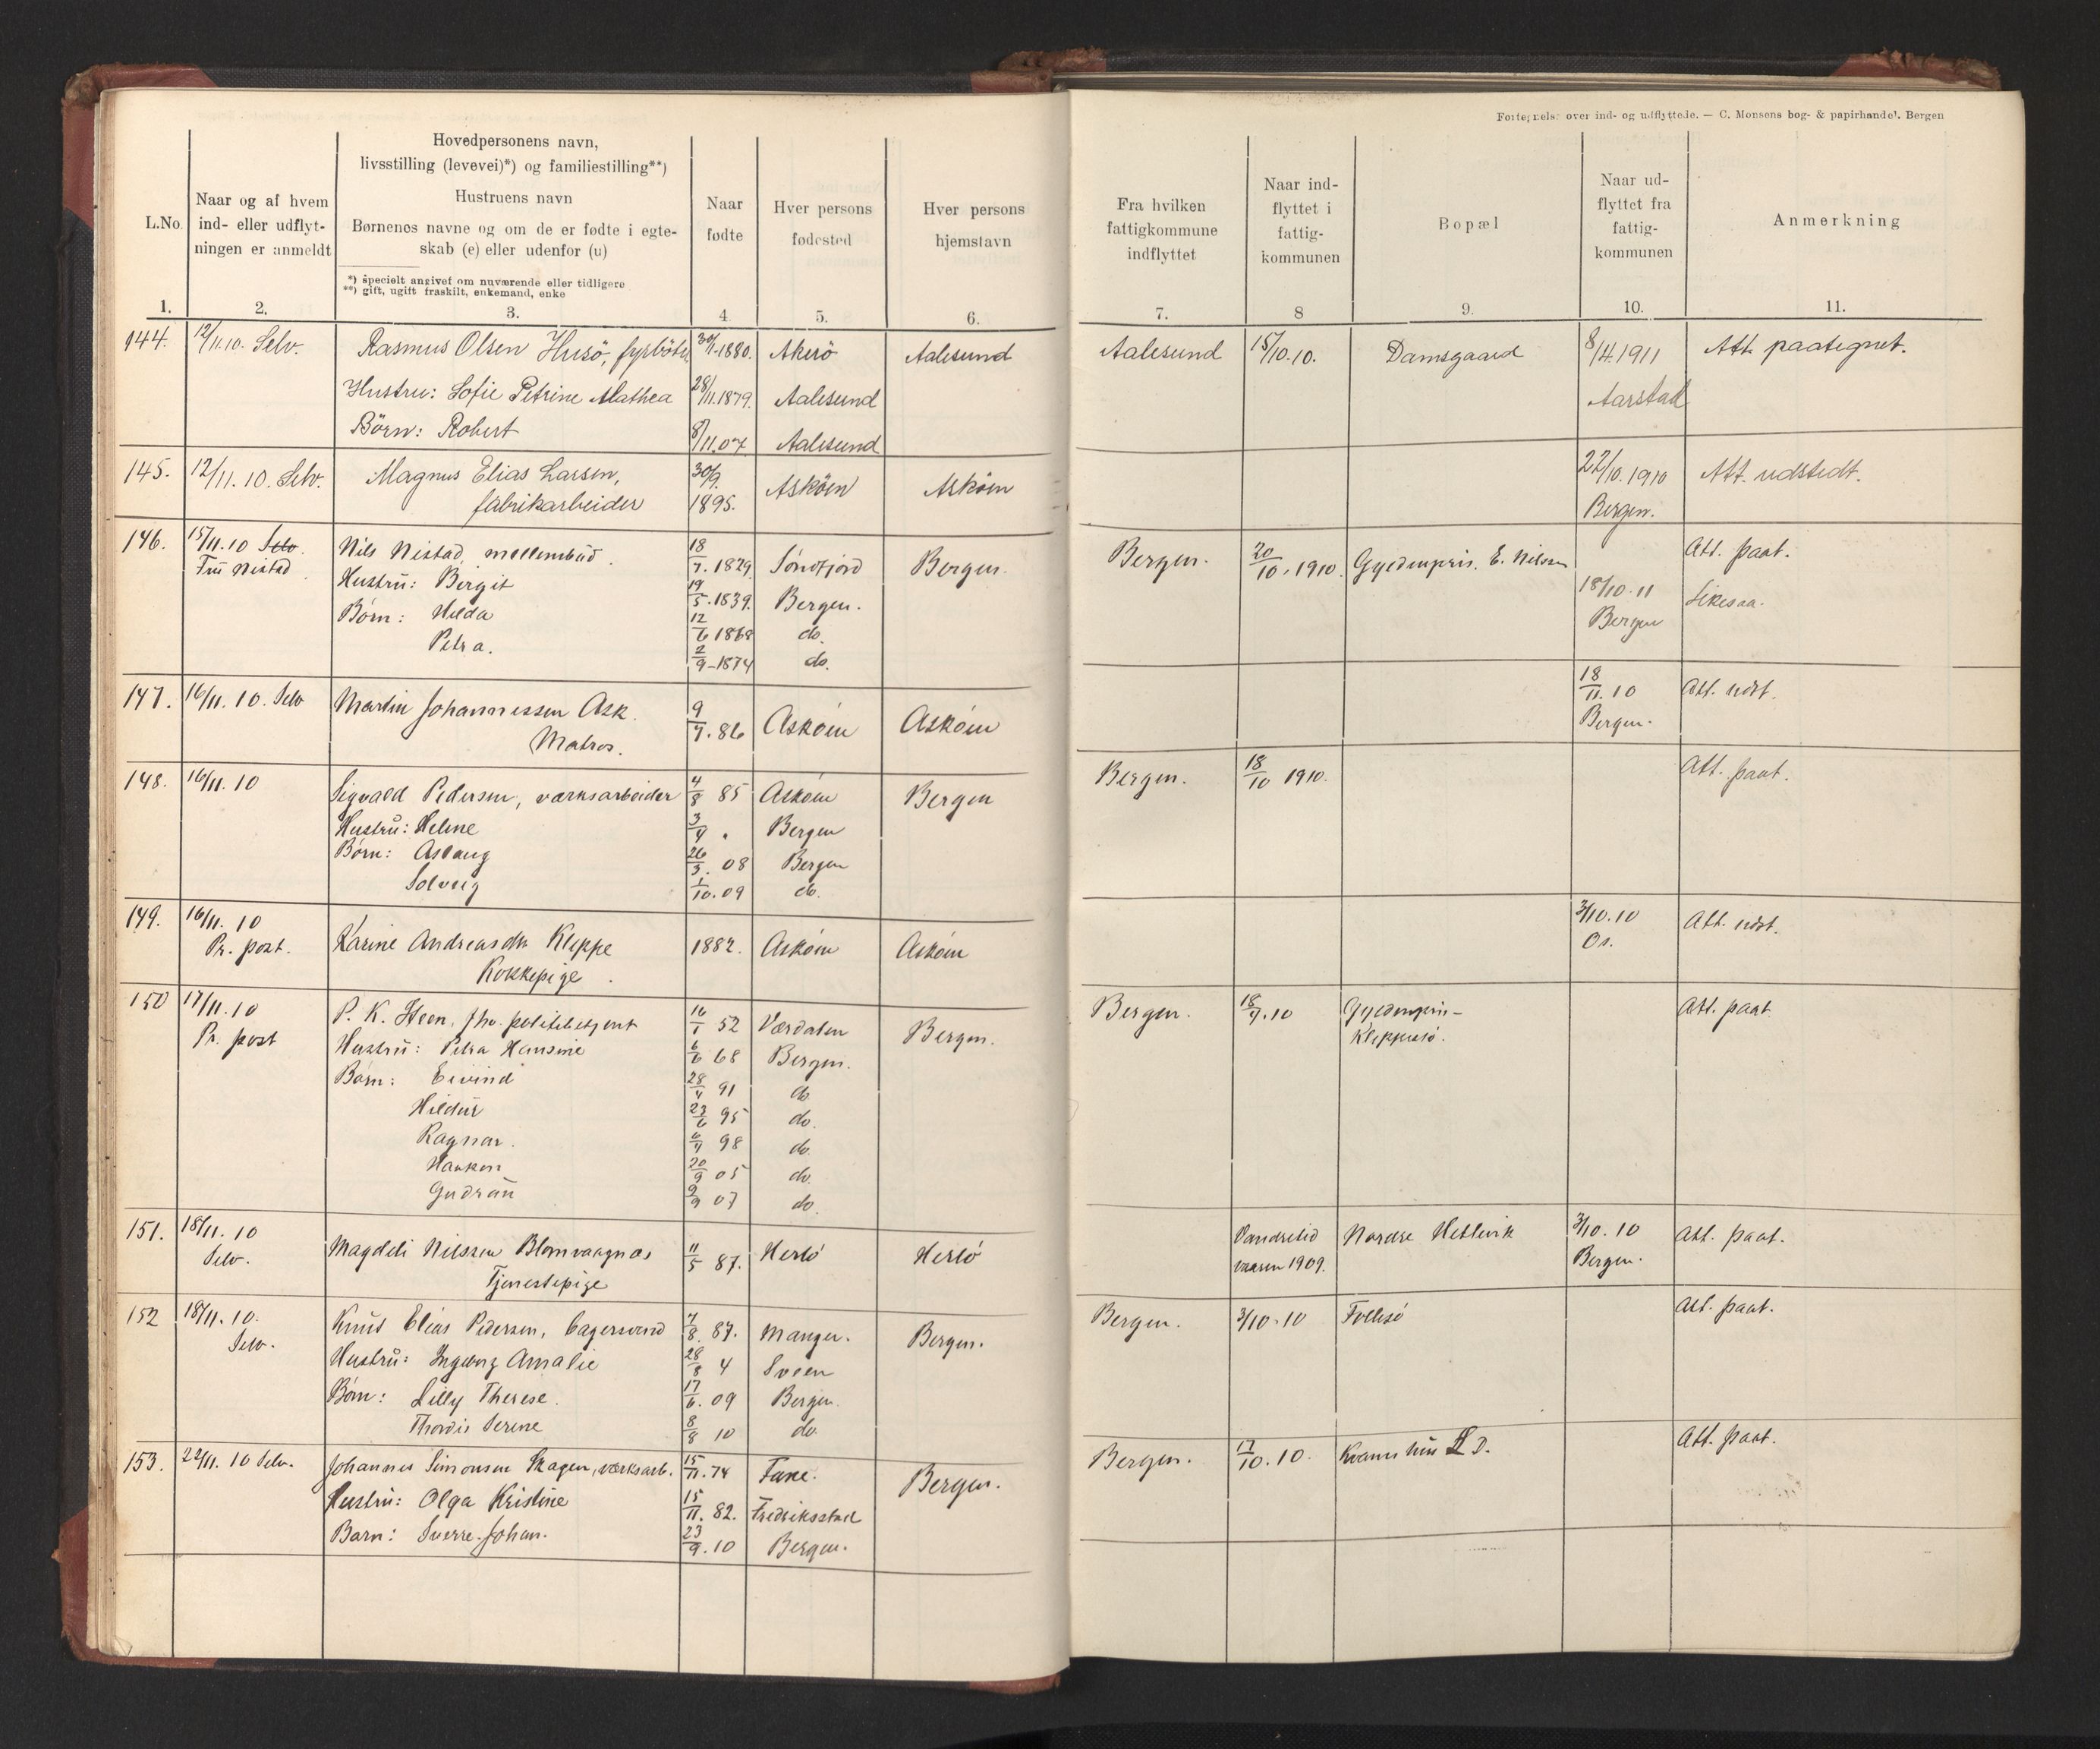 Fortegnelse over ind- og udflyttede. — C. Monsens bog- & papirhandel. Bergen
L.No.
Naar og af hvem
ind- eller udflyt-
ningen er anmeldt
Hovedpersonens navn,
livsstilling (levevei)*) og familiestilling**)
Hustruens navn
Børnenes navne og om de er fødte i egte-
skab (e) eller udenfor (u)
*) specielt angivet om nuværende eller tidligere
**) gift, ugift fraskilt, enkemand, enke
Naar
fødte
Hver persons
fødested
Hver persons
hjemstavn
Fra hvilken
fattigkommune
indflyttet
Naar ind-
flyttet i
fattig-
kommunen
Bopæl
Naar ud-
flyttet fra
fattig-
kommunen
Anmerkning
1. 2. 3. 4 5. 6. 7. 8 9. 10. 11.
144. 12/11.10. Selv. Rasmus Olsen Husö, fyrböter 30/11.1880. Akerö Aalesund Aalesund 15/10.10. Damsgaard 8/4.1911 Att. paategnet.
Hustru: Sofie Petrine Mathea 28/11.1879. Aalesund Aarstad
Börn: Robert 8/11.07 Aalesund
145. 12/11.10. Selv. Magnus Elias Larsen, 30/9. Asköen Asköen 22/10.1910 Att. udstedt.
fabrikarbeider 1895. Bergen.
146. 15/11.10 Selv. Nils Nistad, 18/7.1829. Söndfjord Bergen. Bergen. 20/10.1910. Gyldenpris. E. Nilssen Att. paat.
Fru Nistad Hustru: Bergit 19/5.1839. Bergen. 18/10.11
Börn: Hilda 12/6 1868 do. Bergen
Petra. 2/9-1874 do.
147. 16/11.10. Selv Martin Johannessen Ask. 9/7.86 Asköen Asköen 18/11.10 Att. udst.
Matros. Bergen.
148. 16/11.10 Sigvald Pedersen, værksarbeider 4/8 85 Asköen Bergen Bergen. 18/10 1910. Att. paat.
Hustru: Helene 3/4 " Bergen
Börn: Aslaug 26/3. 08 Bergen
Solveig 1/10.09 do.
149. 16/11.10 Karine Andreasdtr Kleppe 1882. Asköen Asköen 3/10.10 Att. udst.
Pr. post. Kokkepige. Os.
150 17/11.10 P. K. Steen, fhv. politibetjent 16/1 52 Værdalen Bergen. Bergen. 18/7.10 Gyldenpris- Att. paat
Pr. post Hustru: Petra Hansine 6/6 68 Bergen. Kleppesö.
Börn: Eivind 28/4 91 do
Hildur 23/6 95 do.
Ragnar. 6/4 98 do.
Haakon 20/9 05 do.
Gudrun 9/9 07 do.
151. 18/11.10 Magdeli Nilssen Blomvaagnes 11/5 87. Herlö Herlö Vandrelid Nordre Hetlevik 3/10.10 Att. paat.
Selv. Tjenestepige vaaren 1909. Bergen.
152 18/11.10. Knud Elias Pedersen, bagersvend 7/8. 87. Manger. Bergen. Bergen. 3/10.10 Follesö Att. paat.
Selv. Hustru: Ingeborg Amalie 28/8 4 Sveen
Börn: Lilly Therese. 17/6. 09 Bergen.
Thordis Serine 8/8 10 do
153. 22/11.10 Selv. Johannes Simonsen Skagen, værksarb. 15/11.74 Fane. Bergen. Bergen. 17/10.10. L. D. Att. paat.
Hustru: Olga Kristine 15/11. 82. Fredriksstad
Barn: Sverre Johan. 23/9.10 Bergen.